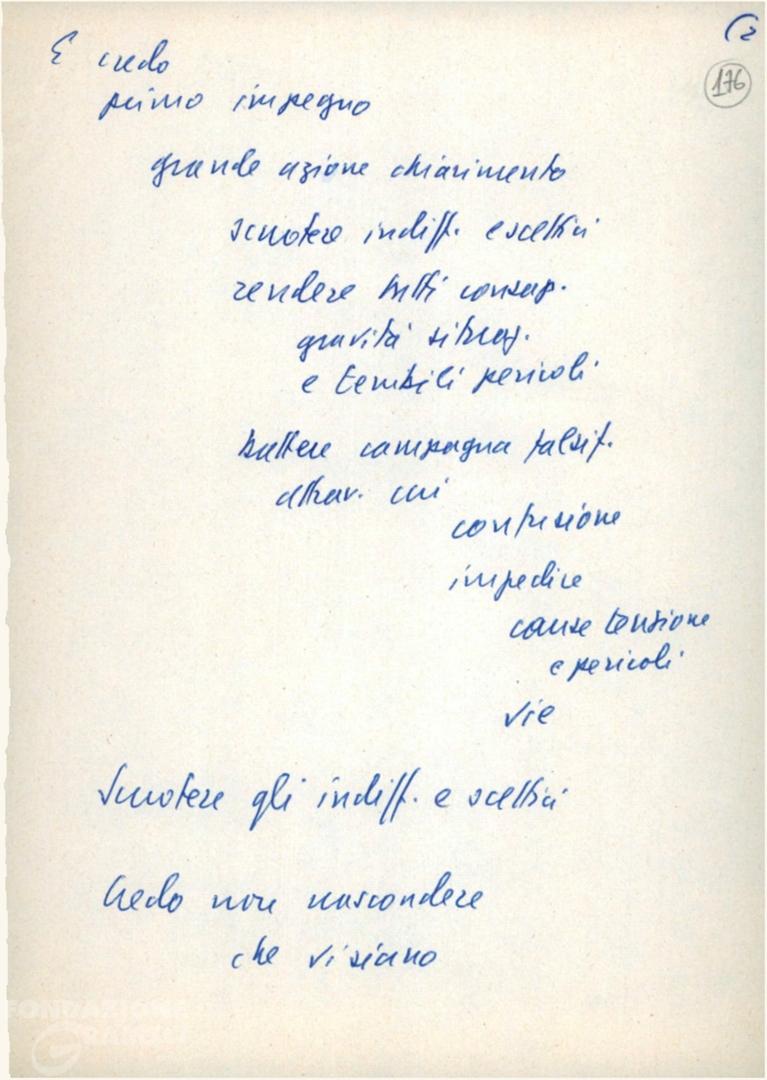 (2
176
E credo
primo impegno
grande azione chiarimento
scuotere indiff. e scettici
rendere tutti consap.
gravità situaz.
e terribili pericoli
battere campagna falsif.
attrav. cui
confusione
impedire
cause tensione
e pericoli
vie
Scuotere gli indiff. e scettici
Credo non nascondere
che vi siano
FONDAZIONE
GRAMSCI